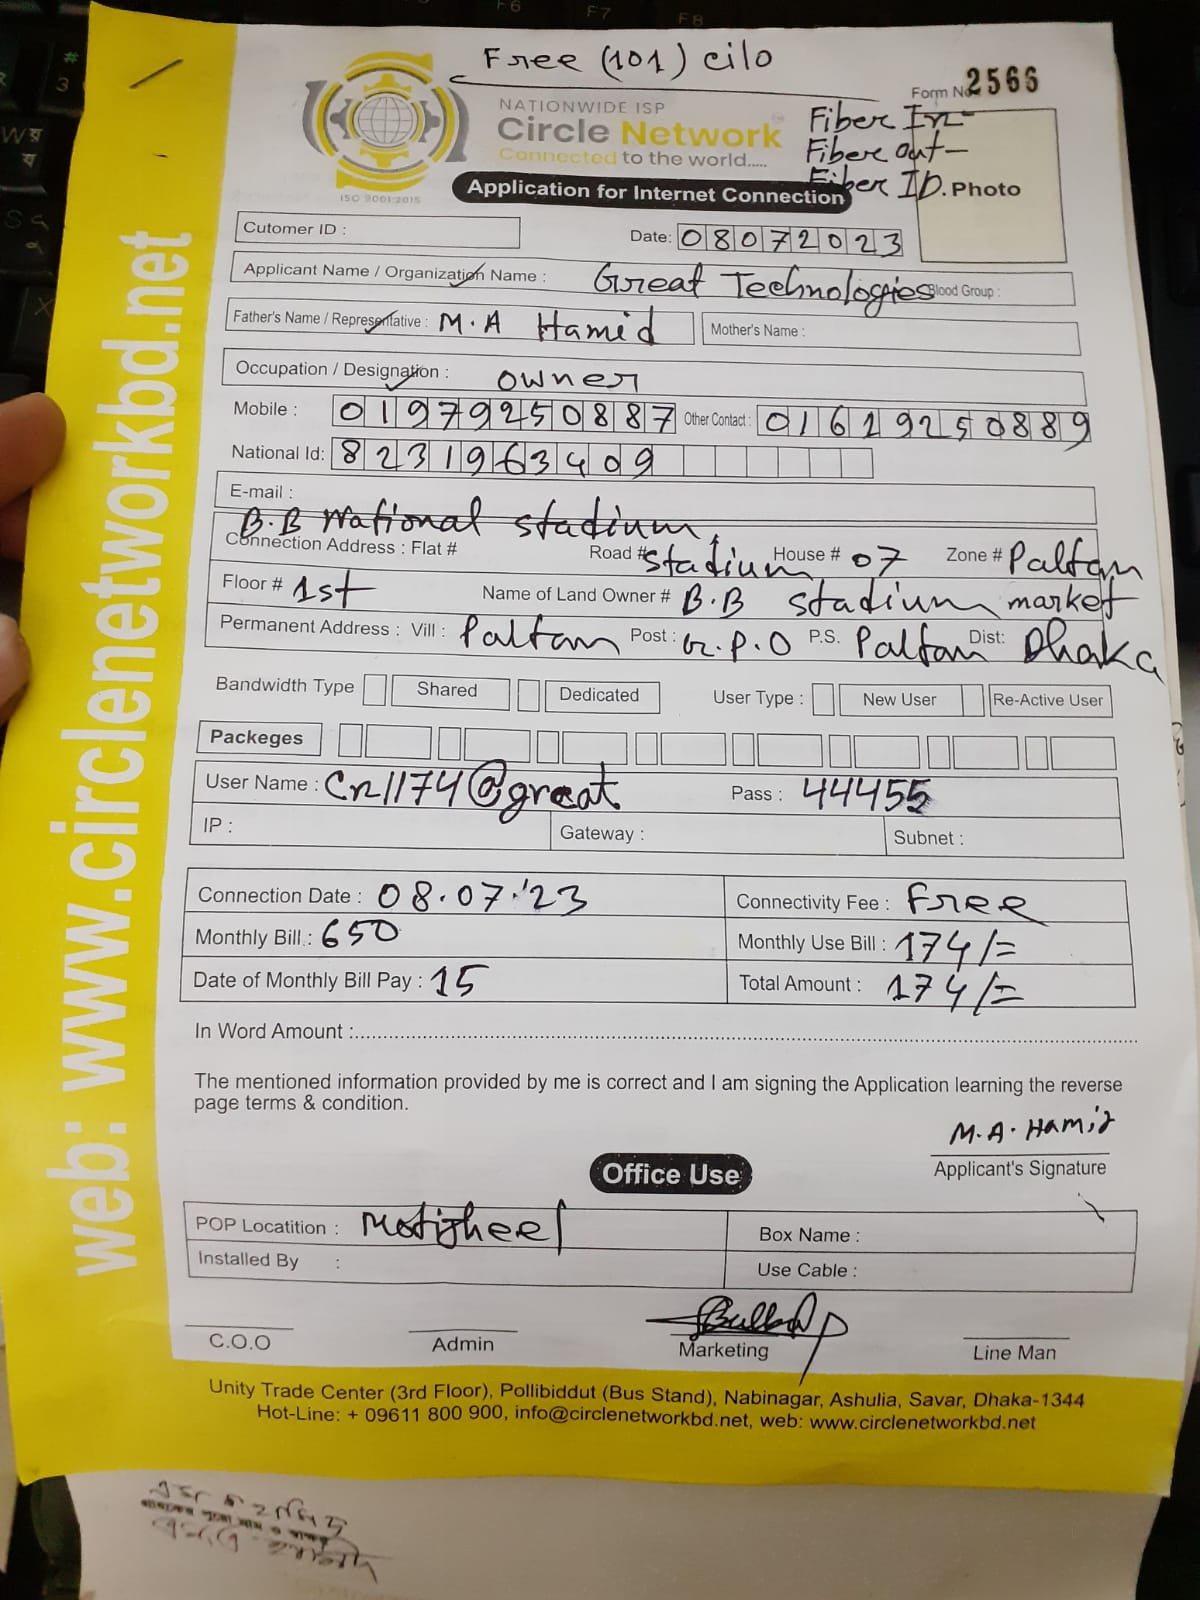 Free (101) cilo
Form No. 2566
NATIONWIDE ISP
Circle Network
Connected to the world.....
ISO 9001:2015
Fiber In-
Fiber out-
Fiber ID.
Photo
Application for Internet Connection
Cutomer ID :
Date: 08072023
Applicant Name / Organization Name : Great Technologies Blood Group :
Father's Name / Representative : M.A Hamid Mother's Name :
Occupation / Designation : owner
Mobile : 01979250887 Other Contact : 01619250889
National Id: 8231963409
E-mail :
B.B National stadium,
Connection Address : Flat # Road # Stadium House # 07 Zone # Paltan
Floor # 1st Name of Land Owner # B.B stadium market
Permanent Address : Vill : Paltan Post : G.P.O P.S. Paltan Dist: Dhaka
Bandwidth Type Shared Dedicated User Type : New User Re-Active User
Packeges
User Name : cn1174@great Pass : 44455
IP : Gateway : Subnet :
Connection Date : 08.07.'23 Connectivity Fee : Free
Monthly Bill : 650 Monthly Use Bill : 174/=
Date of Monthly Bill Pay : 15 Total Amount : 174/=
In Word Amount :
The mentioned information provided by me is correct and I am signing the Application learning the reverse
page terms & condition.
M.A. Hamid
Applicant's Signature
Office Use
POP Locatition : Motijheel Box Name :
Installed By : Use Cable :
C.O.O Admin Marketing Line Man
Unity Trade Center (3rd Floor), Pollibiddut (Bus Stand), Nabinagar, Ashulia, Savar, Dhaka-1344
Hot-Line: + 09611 800 900, info@circlenetworkbd.net, web: www.circlenetworkbd.net
web: www.circlenetworkbd.net